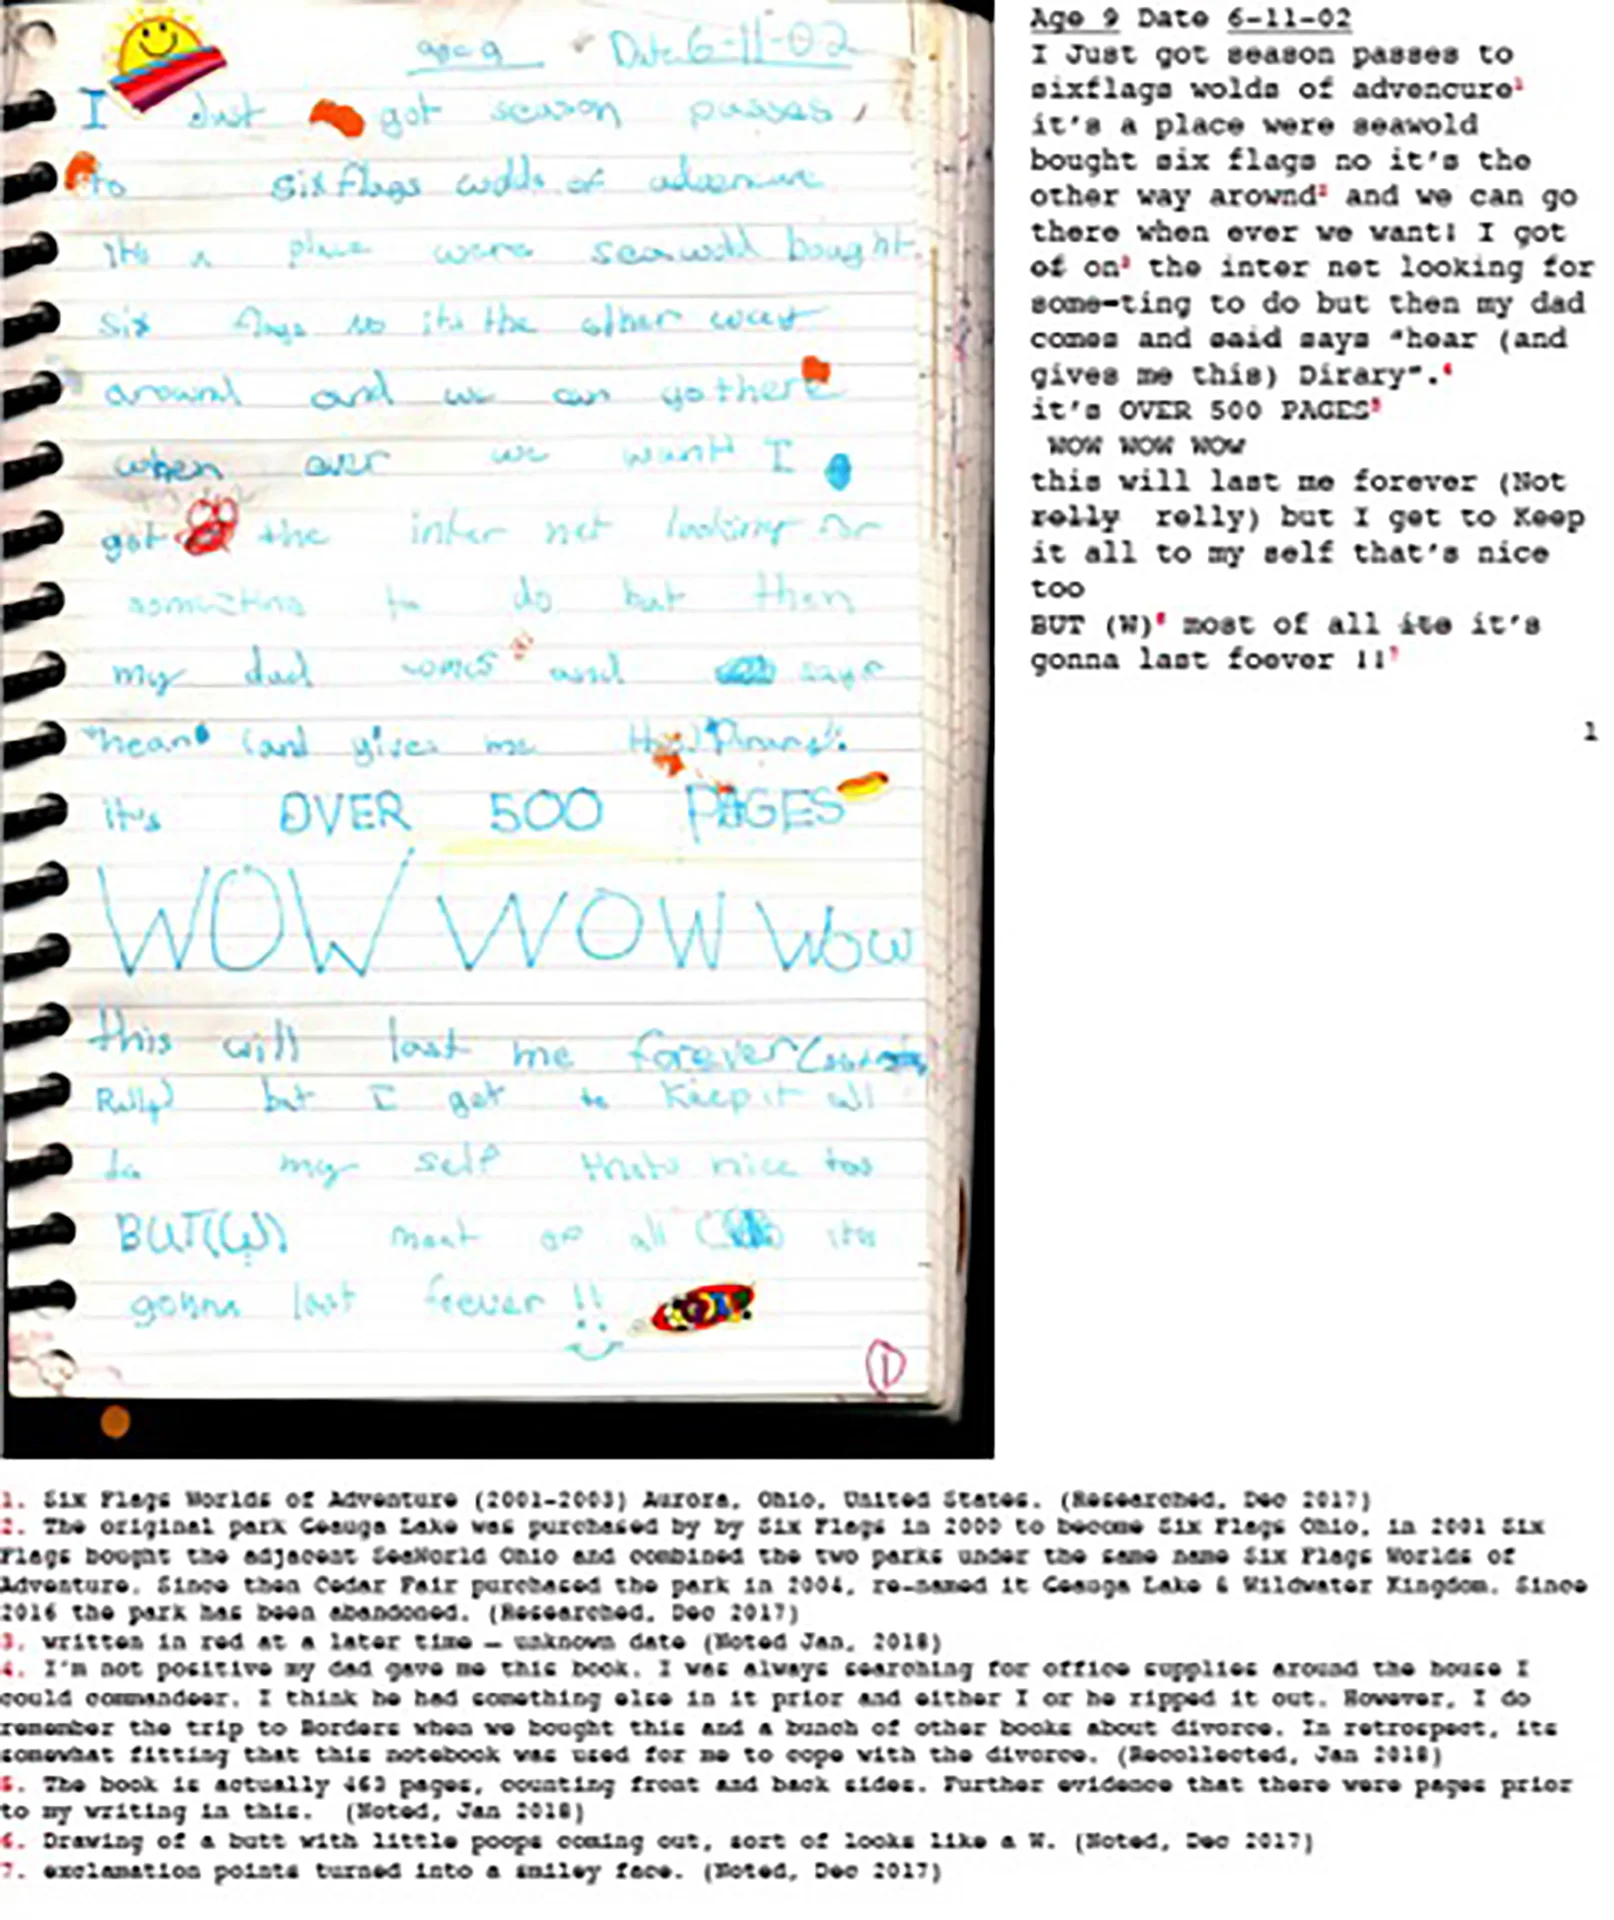 age 9 Date 6-11-02
I Just got season passes
to sixflags wolds of
its a place were seawold bought
six flags no its the other way
around and we can go there
when ever we want! I
got the inter net looking for
to do but then
my dad comes and says
"hear (and gives me this) Dirary".
it's OVER 500 PAGES
WOW WOW WOW
this will last me forever (
Relly) but I get to Keep it all
to my self thats nice too
BUT(W) most of all its
gonna last foever !!
1
Age 9 Date 6-11-02
I Just got season passes to
sixflags wolds of advencure1
it's a place were seawold
bought six flags no it's the
other way arownd2 and we can go
there when ever we want! I got
of on3 the inter net looking for
some-ting to do but then my dad
comes and said says "hear (and
gives me this) Dirary".4
it's OVER 500 PAGES5
WOW WOW WOW
this will last me forever (Not
relly relly) but I get to Keep
it all to my self that's nice
too
BUT (W)6 most of all its it's
gonna last foever !!7
1
1. Six Flags Worlds of Adventure (2001-2003) Aurora, Ohio, United States. (Researched, Dec 2017)
2. The original park Geauga Lake was purchased by by Six Flags in 2000 to become Six Flags Ohio, in 2001 Six
Flags bought the adjacent SeaWorld Ohio and combined the two parks under the same name Six Flags Worlds of
Adventure. Since then Cedar Fair purchased the park in 2004, re-named it Geauga Lake & Wildwater Kingdom. Since
2016 the park has been abandoned. (Researched, Dec 2017)
3. written in red at a later time – unknown date (Noted Jan, 2018)
4. I'm not positive my dad gave me this book. I was always searching for office supplies around the house I
could commandeer. I think he had something else in it prior and either I or he ripped it out. However, I do
remember the trip to Borders when we bought this and a bunch of other books about divorce. In retrospect, its
somewhat fitting that this notebook was used for me to cope with the divorce. (Recollected, Jan 2018)
5. The book is actually 463 pages, counting front and back sides. Further evidence that there were pages prior
to my writing in this. (Noted, Jan 2018)
6. Drawing of a butt with little poops coming out, sort of looks like a W. (Noted, Dec 2017)
7. exclamation points turned into a smiley face. (Noted, Dec 2017)